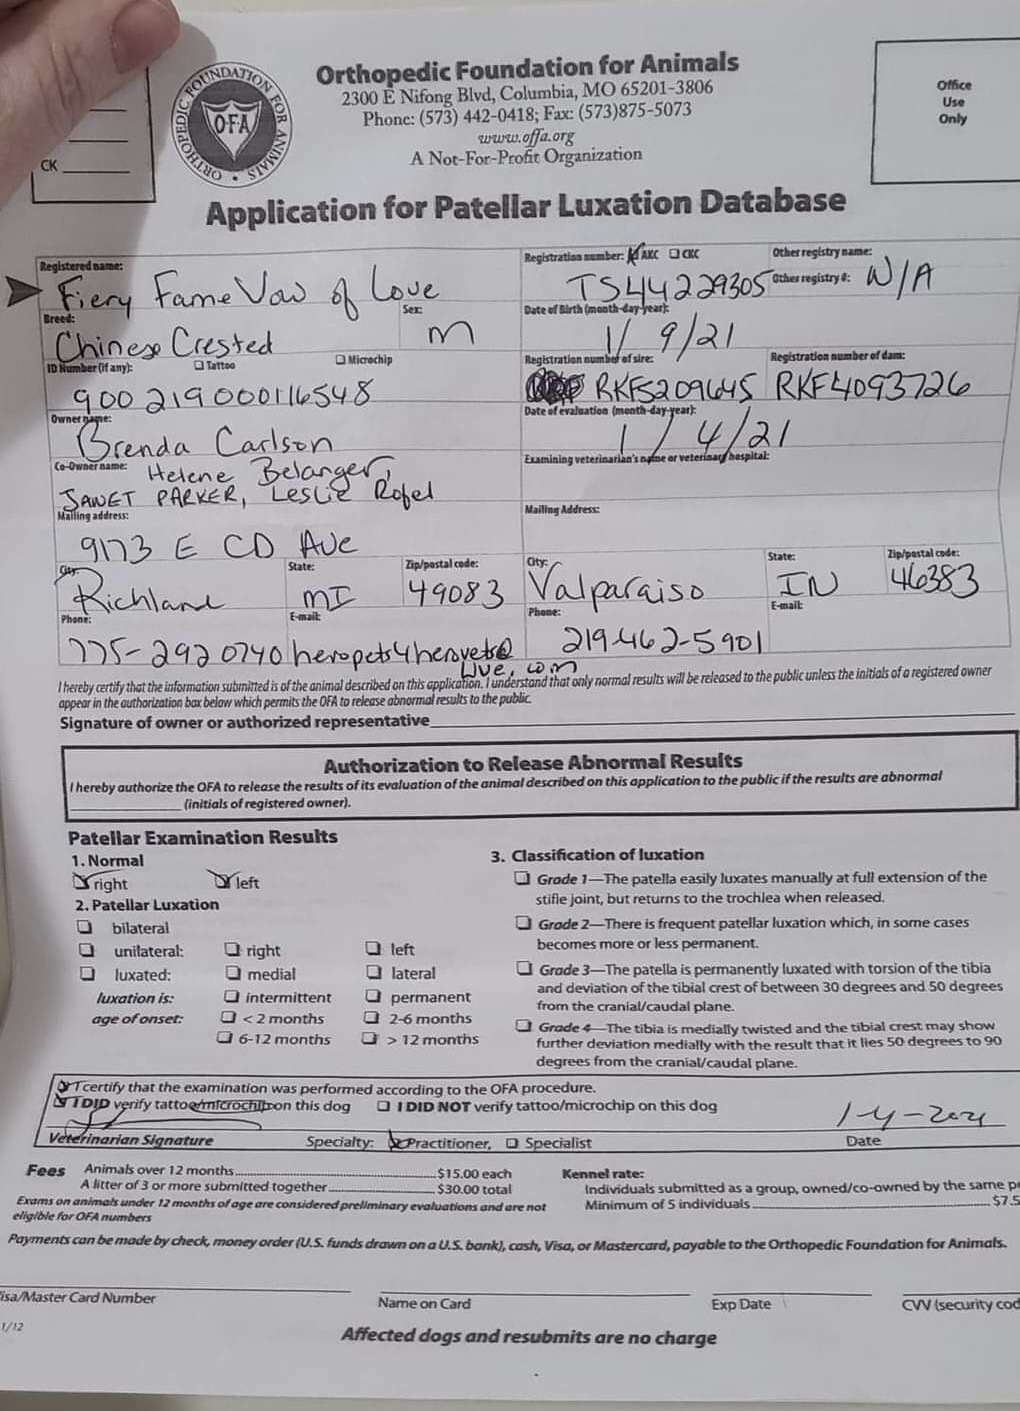 Orthopedic Foundation for Animals
2300 E Nifong Blvd, Columbia, MO 65201-3806
Phone: (573) 442-0418; Fax: (573)875-5073
www.offa.org
A Not-For-Profit Organization
ORTHOPEDIC FOUNDATION FOR ANIMALS
OFA
CK
Office
Use
Only
Application for Patellar Luxation Database
Registered name:
Fiery Fame Vow of Love
Registration number: AKC CKC
TS44229305
Other registry name:
Other registry #: N/A
Breed:
Chinese Crested
Sex:
M
Date of Birth (month-day-year):
1/9/21
ID Number (if any): Tattoo Microchip
900219000116548
Registration number of sire:
RKFS209645
Registration number of dam:
RKF4093726
Owner name:
Brenda Carlson
Date of evaluation (month-day-year):
1/4/21
Co-Owner name: Helene Belanger,
JANET PARKER, Leslie Rofel
Examining veterinarian's name or veterinary hospital:
Mailing address:
9173 E CD Ave
Mailing Address:
City:
Richland
State:
MI
Zip/postal code:
49083
City:
Valparaiso
State:
IN
Zip/postal code:
46383
Phone:
775-292 0740
E-mail:
heropets4herovets@
live.com
Phone:
219-462-5901
E-mail:
I hereby certify that the information submitted is of the animal described on this application. I understand that only normal results will be released to the public unless the initials of a registered owner
appear in the authorization box below which permits the OFA to release abnormal results to the public.
Signature of owner or authorized representative
Authorization to Release Abnormal Results
I hereby authorize the OFA to release the results of its evaluation of the animal described on this application to the public if the results are abnormal
(initials of registered owner).
Patellar Examination Results
1. Normal
right left
2. Patellar Luxation
bilateral
unilateral: right left
luxated: medial lateral
luxation is: intermittent permanent
age of onset: < 2 months 2-6 months
6-12 months > 12 months
3. Classification of luxation
Grade 1—The patella easily luxates manually at full extension of the
stifle joint, but returns to the trochlea when released.
Grade 2—There is frequent patellar luxation which, in some cases
becomes more or less permanent.
Grade 3—The patella is permanently luxated with torsion of the tibia
and deviation of the tibial crest of between 30 degrees and 50 degrees
from the cranial/caudal plane.
Grade 4—The tibia is medially twisted and the tibial crest may show
further deviation medially with the result that it lies 50 degrees to 90
degrees from the cranial/caudal plane.
I certify that the examination was performed according to the OFA procedure.
I DID verify tattoo/microchip on this dog I DID NOT verify tattoo/microchip on this dog
1-4-2021
Veterinarian Signature Specialty: Practitioner, Specialist Date
Fees Animals over 12 months $15.00 each
A litter of 3 or more submitted together $30.00 total
Exams on animals under 12 months of age are considered preliminary evaluations and are not
eligible for OFA numbers
Kennel rate:
Individuals submitted as a group, owned/co-owned by the same
Minimum of 5 individuals $7.5
Payments can be made by check, money order (U.S. funds drawn on a U.S. bank), cash, Visa, or Mastercard, payable to the Orthopedic Foundation for Animals.
isa/Master Card Number Name on Card Exp Date CVV (security cod
1/12
Affected dogs and resubmits are no charge